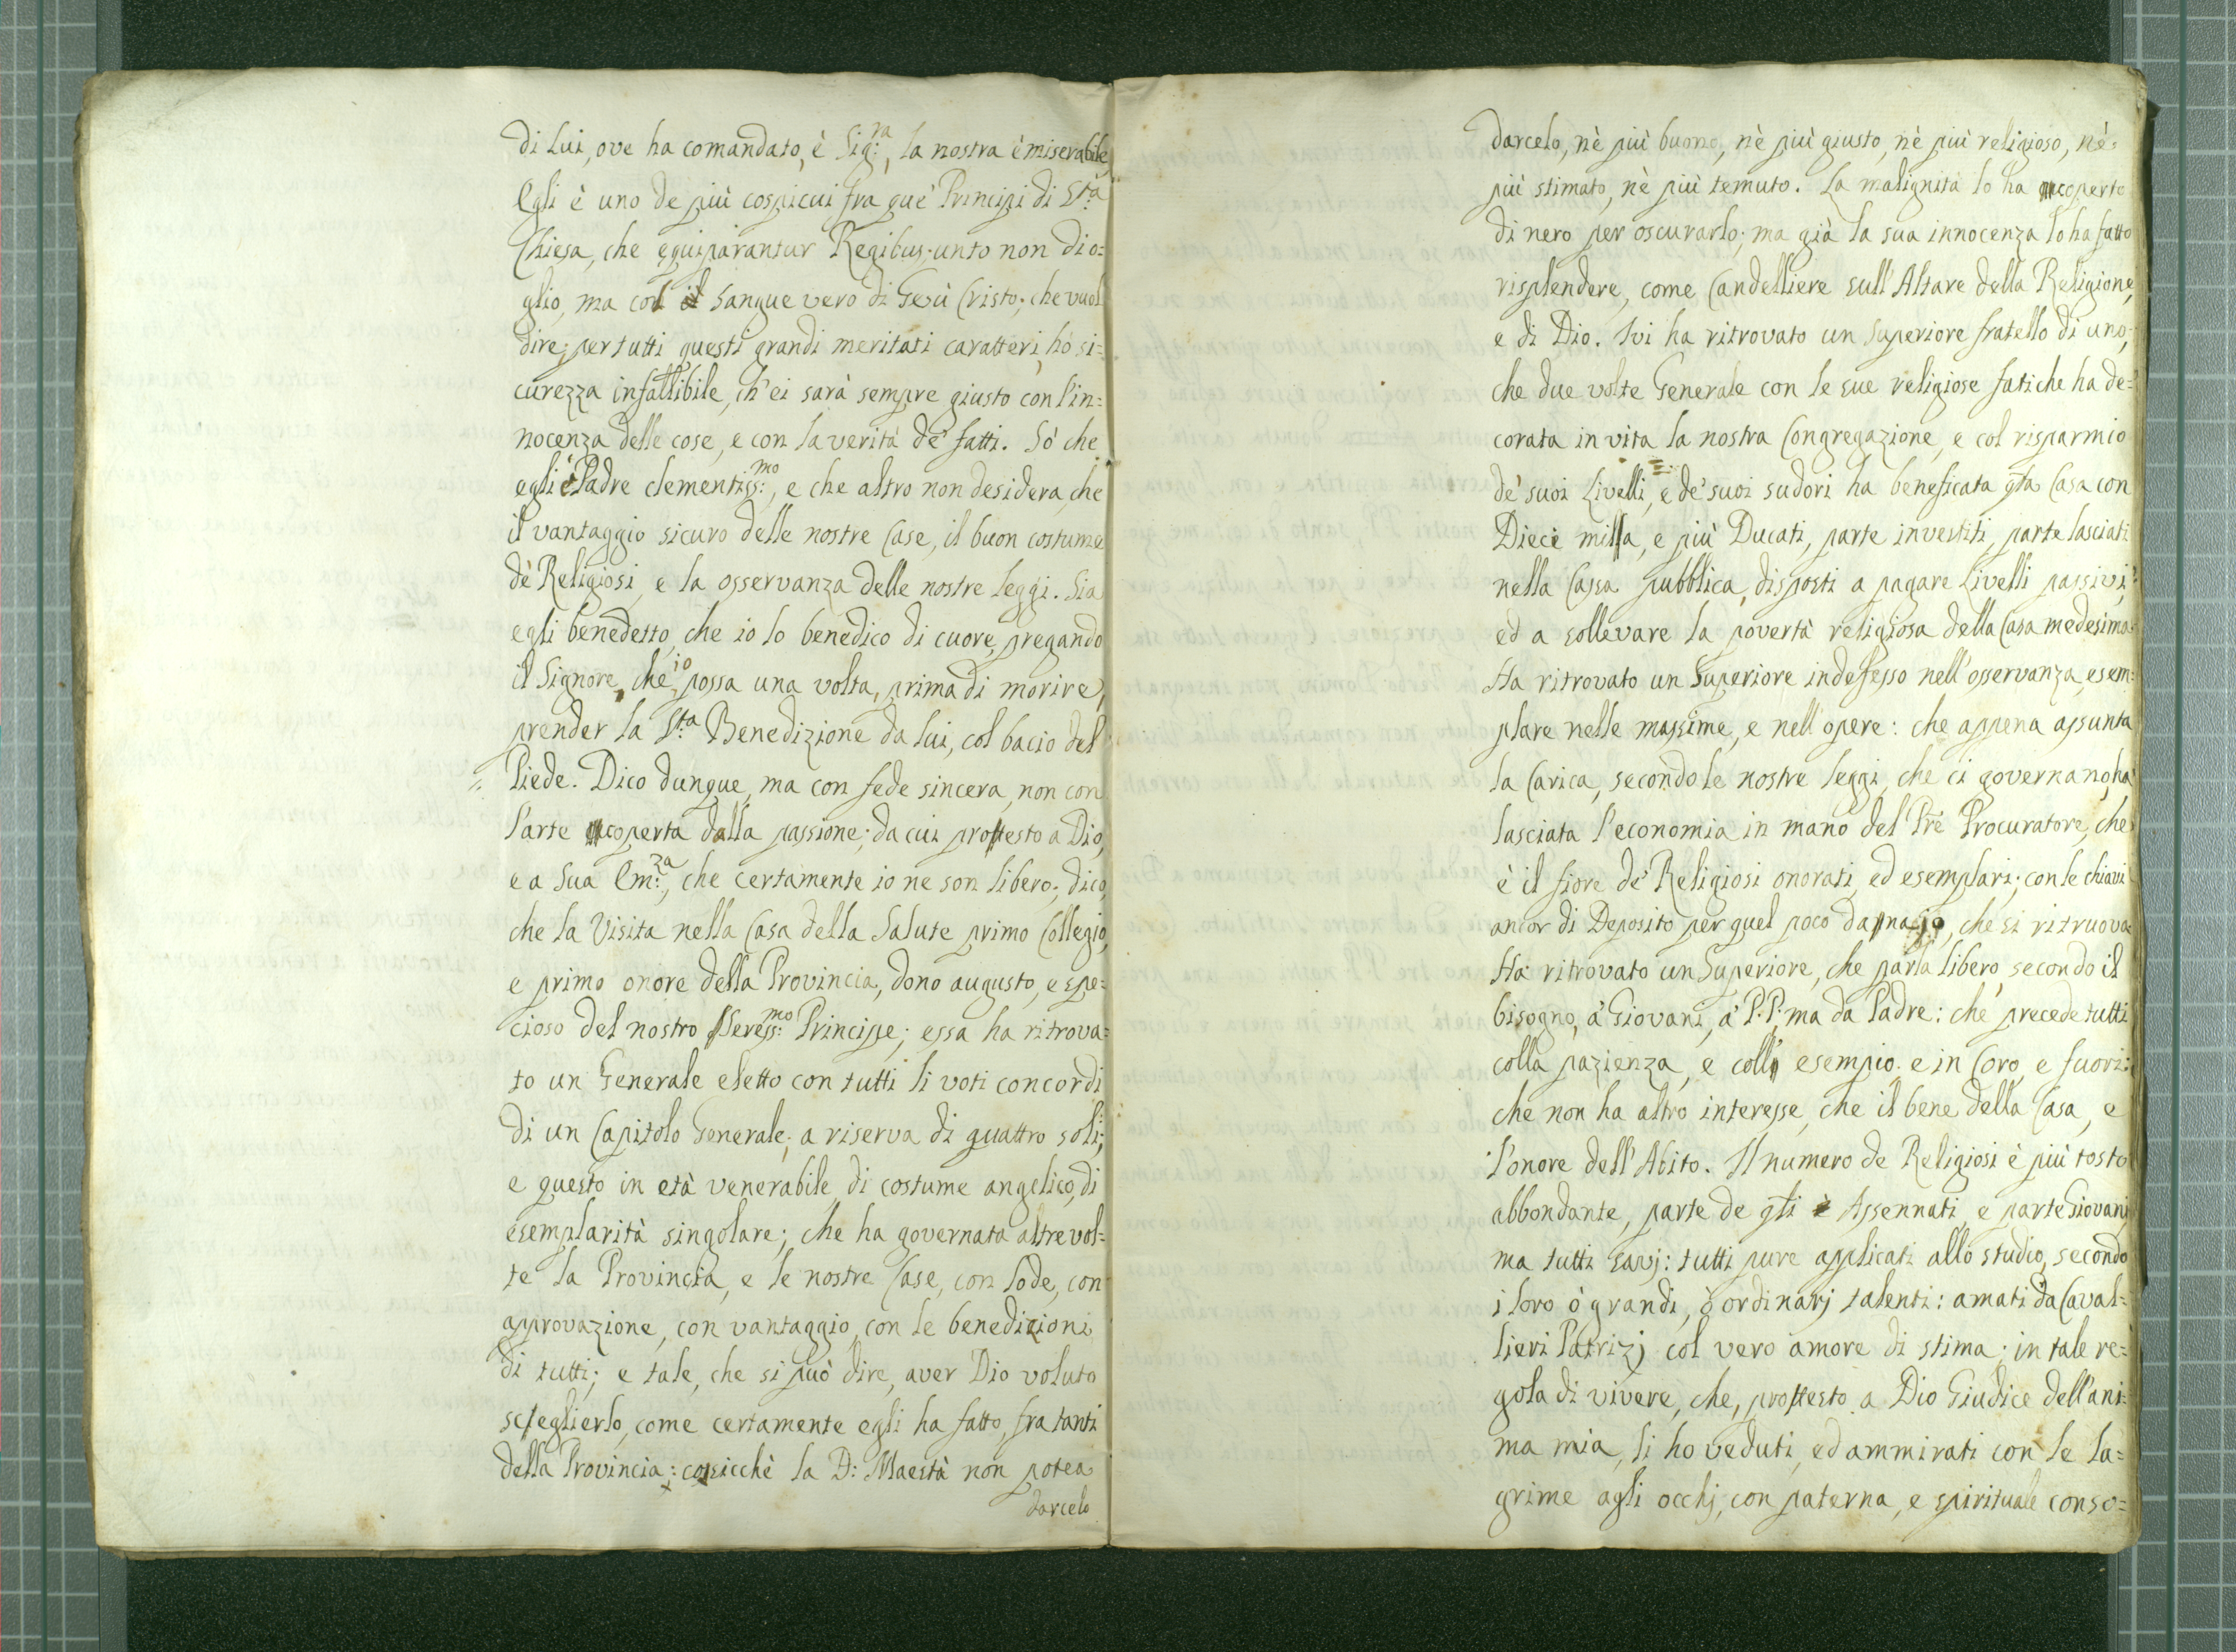 di Lui, ove ha comandato, è Sig:ra, la nostra è miserabile,
Egli è uno de più cospicui fra que' Principi di S:ta
Chiesa, che equiparantur Regibus; unto non d'o=
glio, ma col il Sangue vero di Gesù Cristo; che vuol
dire; per tutti questi grandi meritati caratteri, hò si=
curezza infallibile, ch' ei sarà sempre giusto con l'in=
nocenza delle cose, e con la verità de' fatti. Sò che
egli è Padre clementiss:mo, e che altro non desidera, che
il vantaggio sicuro delle nostre Case, il buon costume
de' Religiosi, e la osservanza delle nostre leggi. Sia
egli benedetto, che io lo benedico di cuore, pregando
il Signore, che io possa una volta, prima di morire,
prender la S:ta Benedizione da lui, col bacio del
Piede. Dico dunque, ma con fede sincera, non con
l'arte coperta dalla passione; da cui protesto a Dio,
e a Sua Em:za, che certamente io ne son libero; dico,
che la Visita nella Casa della Salute primo Collegio,
e primo onore della Provincia, dono augusto, e spe=
cioso del nostro Sereniss:mo Principe; essa ha ritrova=
to un Generale eletto con tutti li voti concordi
di un Capitolo Generale; a riserva di quattro soli;
e questo in età venerabile, di costume angelico, di
esemplarità singolare; che ha governata altre vol=
te la Provincia, e le nostre Case, con lode, con
approvazione, con vantaggio, con le benedizioni
di tutti; e tale, che si può dire, aver Dio voluto
sceglierlo, come certamente egli ha fatto, fra tanti
della Provincia: cosicchè la D: Maestà non potea
darcelo
darcelo, nè più buono, nè più giusto, nè più religioso, nè
più stimato, nè più temuto. La malignità lo ha coperto
di nero per oscurarlo; ma già la sua innocenza lo ha fatto
risplendere, come Candelliere sull' Altare della Religione,
e di Dio. Ivi ha ritrovato un Superiore fratello di uno,
che due volte Generale con le sue religiose fatiche ha de=
corata in vita la nostra Congregazione, e col risparmio
de' suoi Livelli, e de' suoi sudori ha beneficata qta Casa con
Dieci milla, e più Ducati, parte investiti, parte lasciati
nella Cassa pubblica, disposti a pagare Livelli passivi,
ed a sollevare la povertà religiosa della Casa medesima.
Ha ritrovato un Superiore indefesso nell' osservanza, esem=
plare nelle massime, e nell' opere: che appena assunta
la Carica, secondo le nostre leggi, che ci governano, ha
lasciata l'economia in mano del Pre Procuratore, che
è il fiore de' Religiosi onorati, ed esemplari; con le chiavi
ancor di Deposito per quel poco danajo, che si ritruova.
Ha ritrovato un Superiore, che parla libero, secondo il
bisogno, a' Giovani, a' P:P: ma da Padre: che precede tutti
colla pazienza, e coll' esempio. e in Coro, e fuori:
che non ha altro interesse, che il bene della Casa, e
l'onore dell' Abito. Il numero de Religiosi è più tosto
abbondante, parte de qti è Assennati, e parte Giovani
ma tutti savj: tutti pure applicati allo studio, secondo
i loro ò grandi, ò ordinarj talenti: amati da Caval=
lieri Patrizj col vero amore di stima; in tale re=
gola di vivere, che, protesto a Dio Giudice dell' ani=
ma mia, li ho veduti, ed ammirati con le la=
grime agli occhj, con paterna, e spirituale conso=